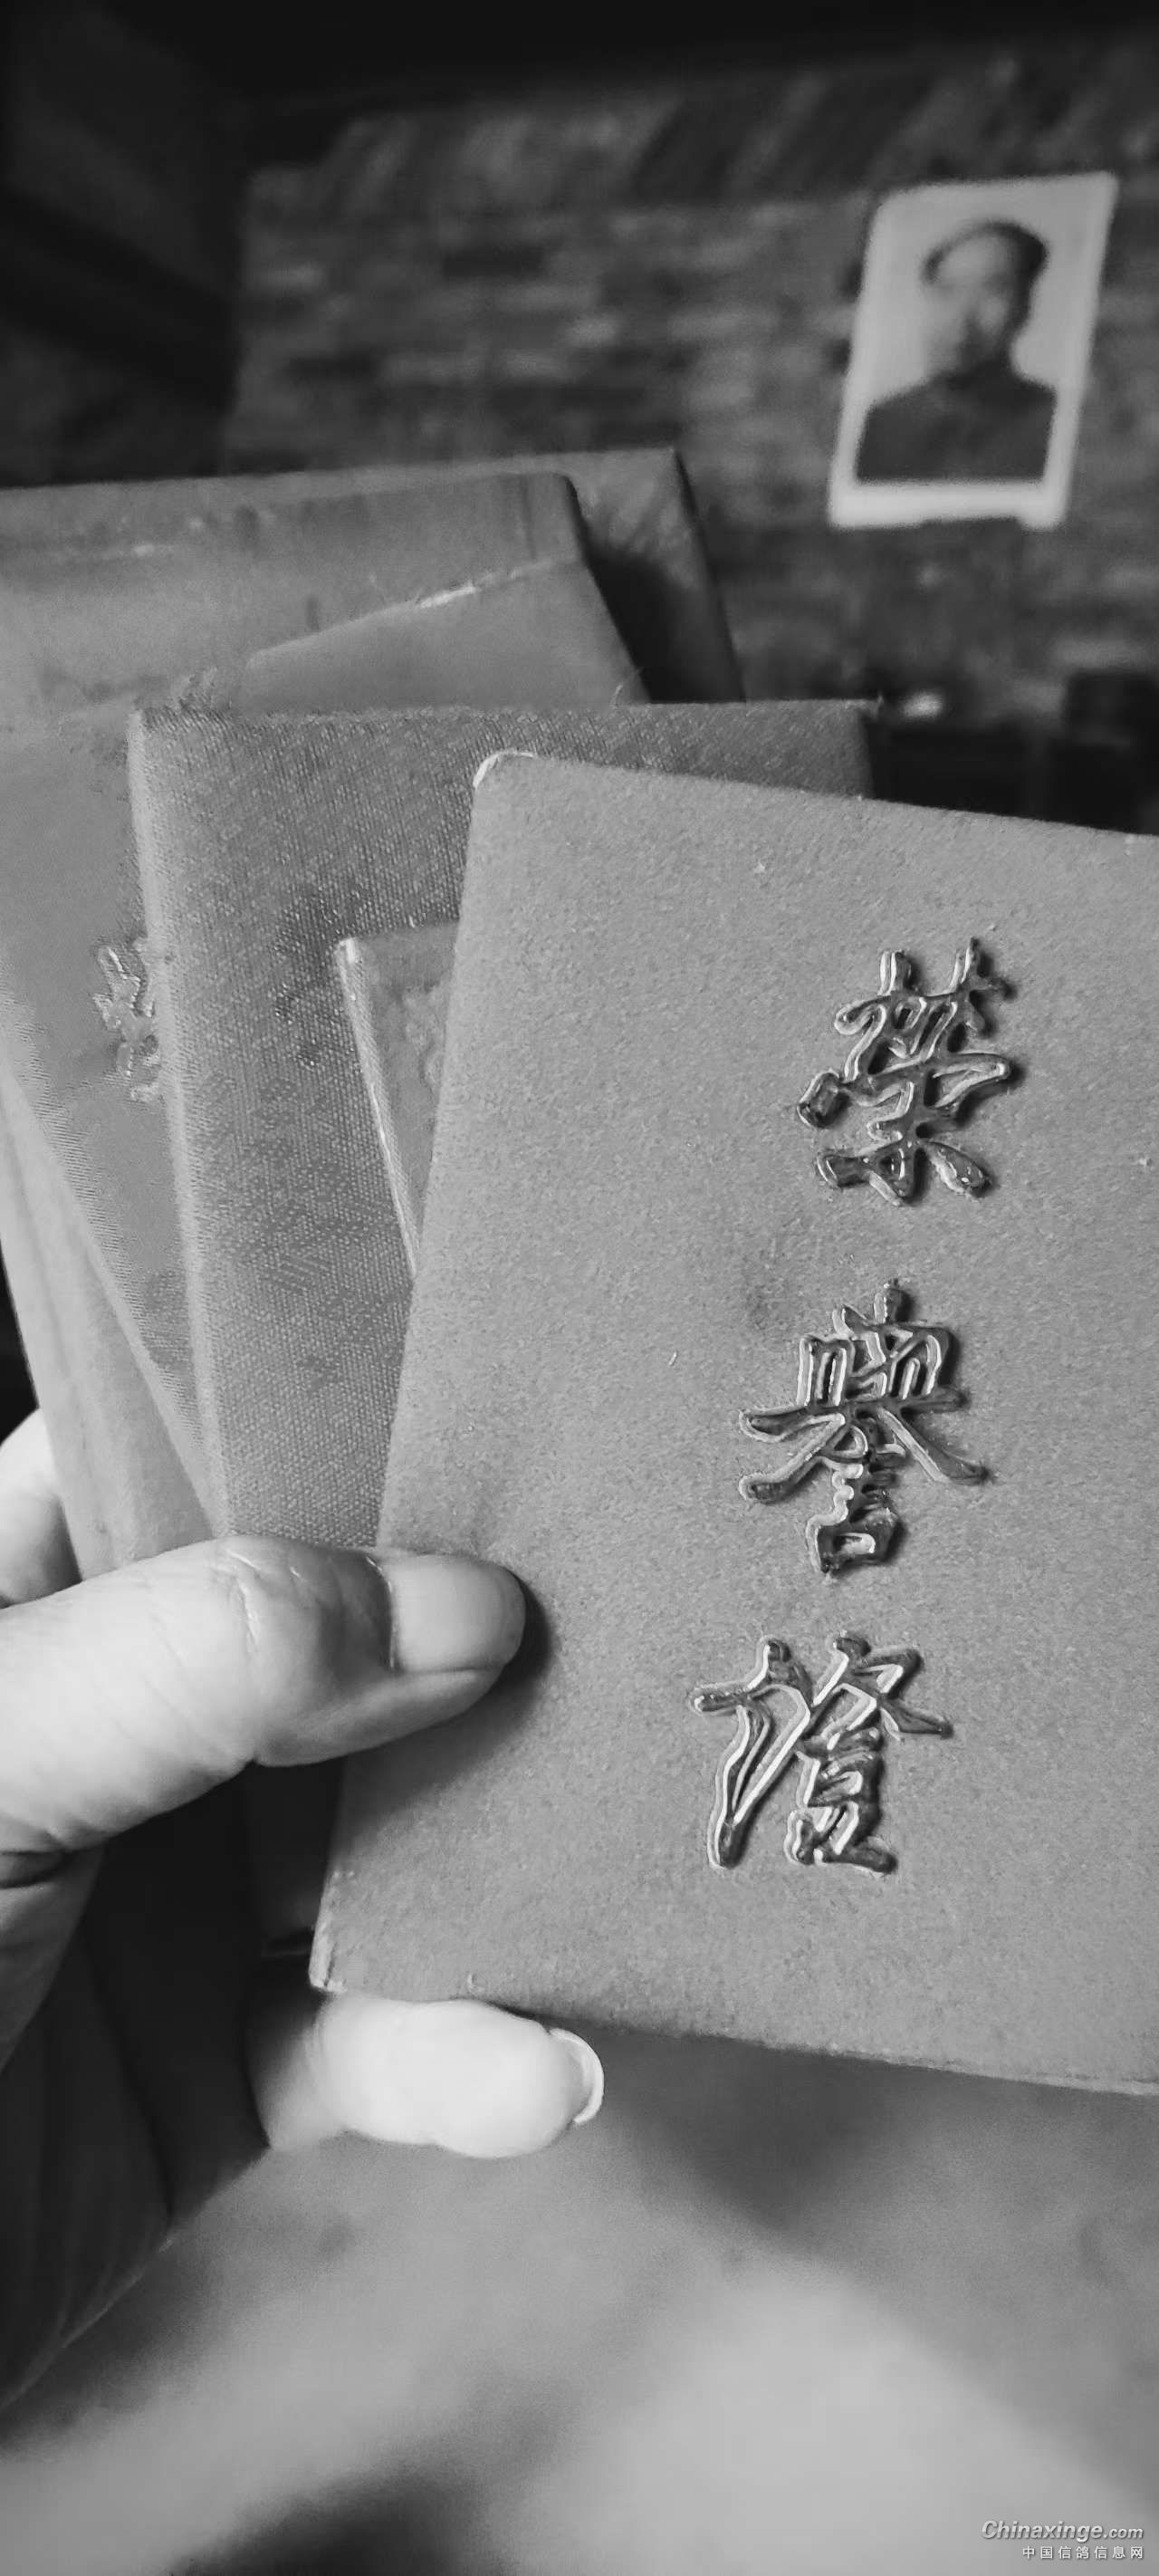 荣譽證
Chinaxinge.com
中国信鸽信息网